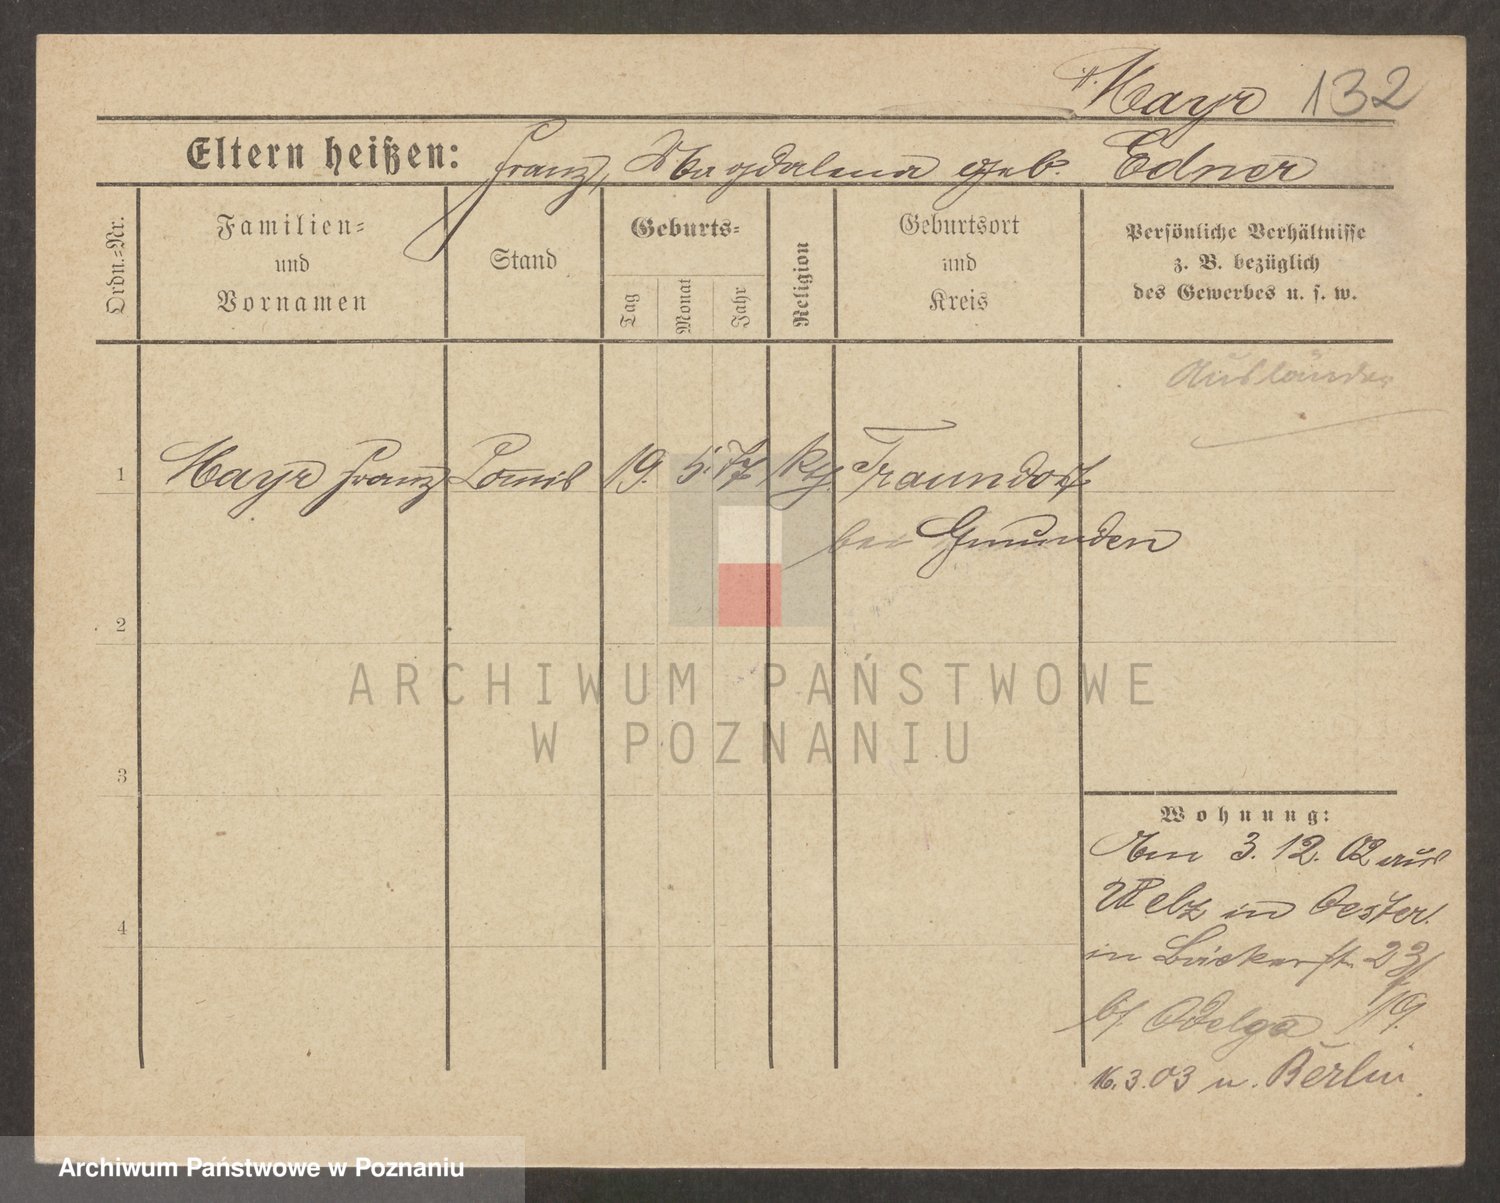 Mayr 132
Eltern heißen: Franz, Magdalena geb. Edner
Ordn.=Nr.
Familien=
und
Vornamen
Stand
Geburts=
Tag
Monat
Jahr
Religion
Geburtsort
und
Kreis
Persönliche Verhältnisse
z. B. bezüglich
des Gewerbes u. s. w.
Ausländer
1 Mayr Franz Comis 19. 5. 77 kth. Traundorf
bei Gmunden
2
ARCHIWUM PAŃSTWOWE
W POZNANIU
3
Wohnung:
Am 3. 12. 02 aus
Welz in Oester.
in Bäckerstr. 23/
4
b/ Odelga 19.
16.3.03 n. Berlin
Archiwum Państwowe w Poznaniu